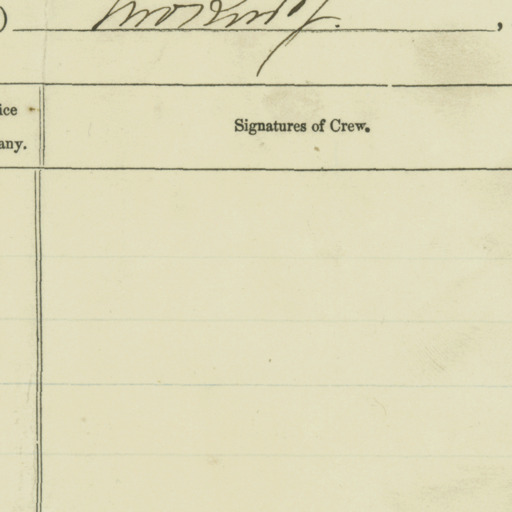 )
,
ice
any.
Signatures of Crew.